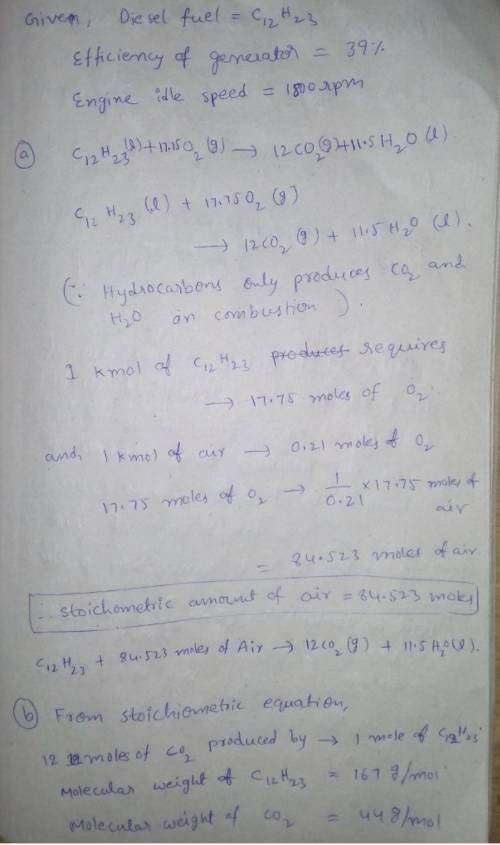 Given, Diesel fuel = C12H23
Efficiency of generator = 39%
Engine idle speed = 1800rpm
(a) C12H23(l) + 17.75O2(g) → 12CO2(g) + 11.5H2O(l)
C12H23(l) + 17.75O2(g)
→ 12CO2(g) + 11.5H2O(l).
(∵ Hydrocarbons only produces CO2 and
H2O on combustion).
1 kmol of C12H23 produces requires
→ 17.75 moles of O2
and, 1 kmol of air → 0.21 moles of O2
17.75 moles of O2 → 1/0.21 × 17.75 moles of air
= 84.523 moles of air.
∴ stoichometric amount of air = 84.523 moles
C12H23 + 84.523 moles of Air → 12CO2(g) + 11.5H2O(l).
(b) From stoichiometric equation,
12 moles of CO2 produced by → 1 mole of C12H23.
Molecular weight of C12H23 = 167 g/mol
Molecular weight of CO2 = 44 g/mol